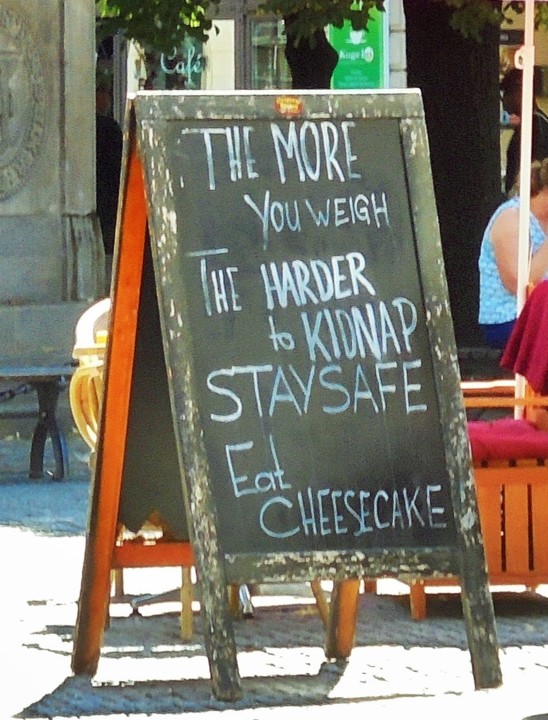 Café
THE MORE
YOU WEIGH
THE HARDER
to KIDNAP
STAY SAFE
Eat
CHEESECAKE